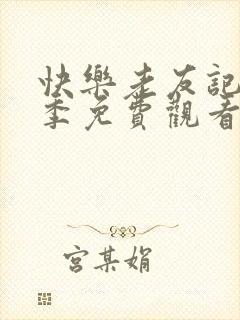 快樂老友記
季免費觀看
宮某娟